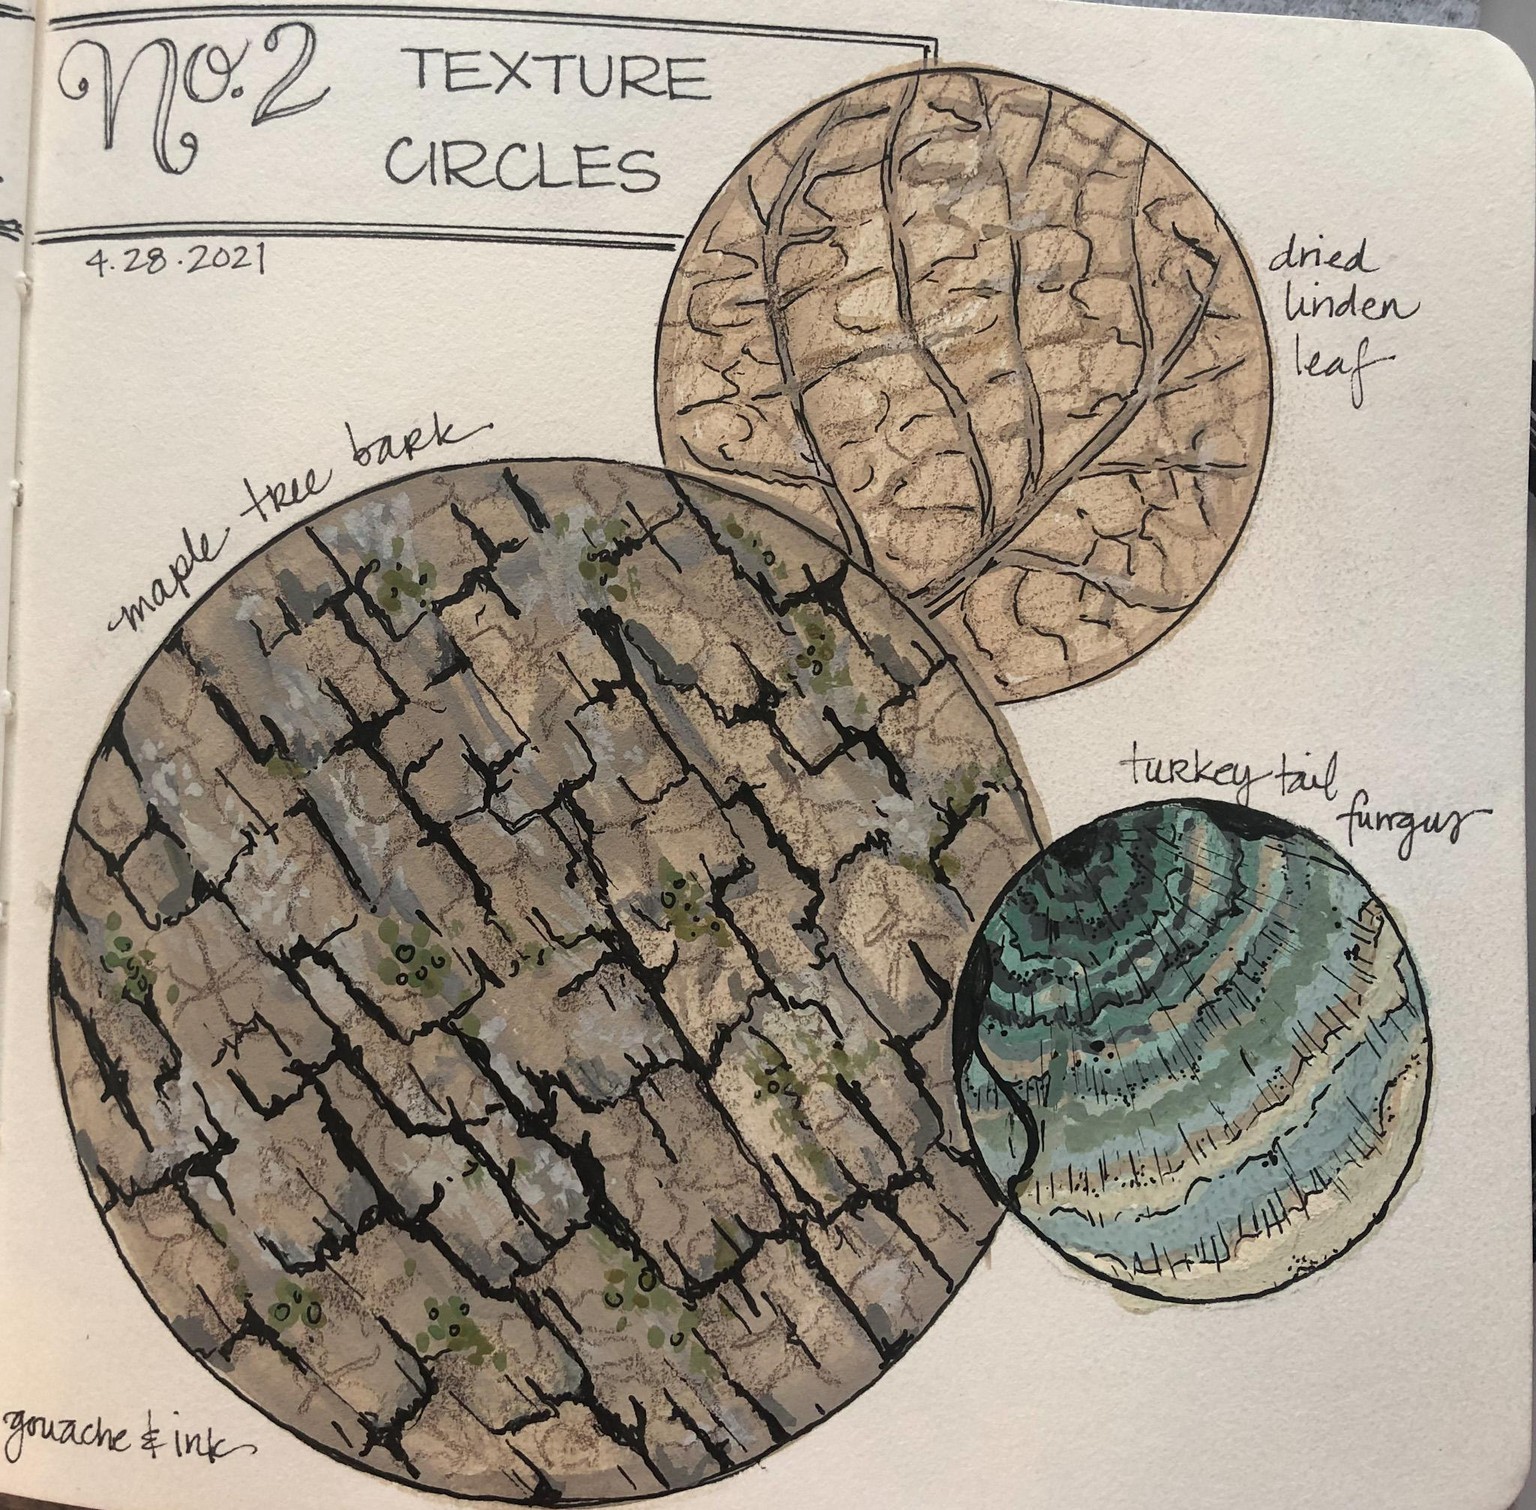 No. 2 TEXTURE
CIRCLES
4.28.2021
dried
linden
leaf
maple tree bark
turkey tail
fungus
gouache & ink